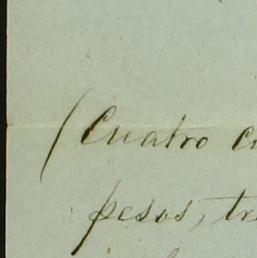 (Cuatro
pesos, tr